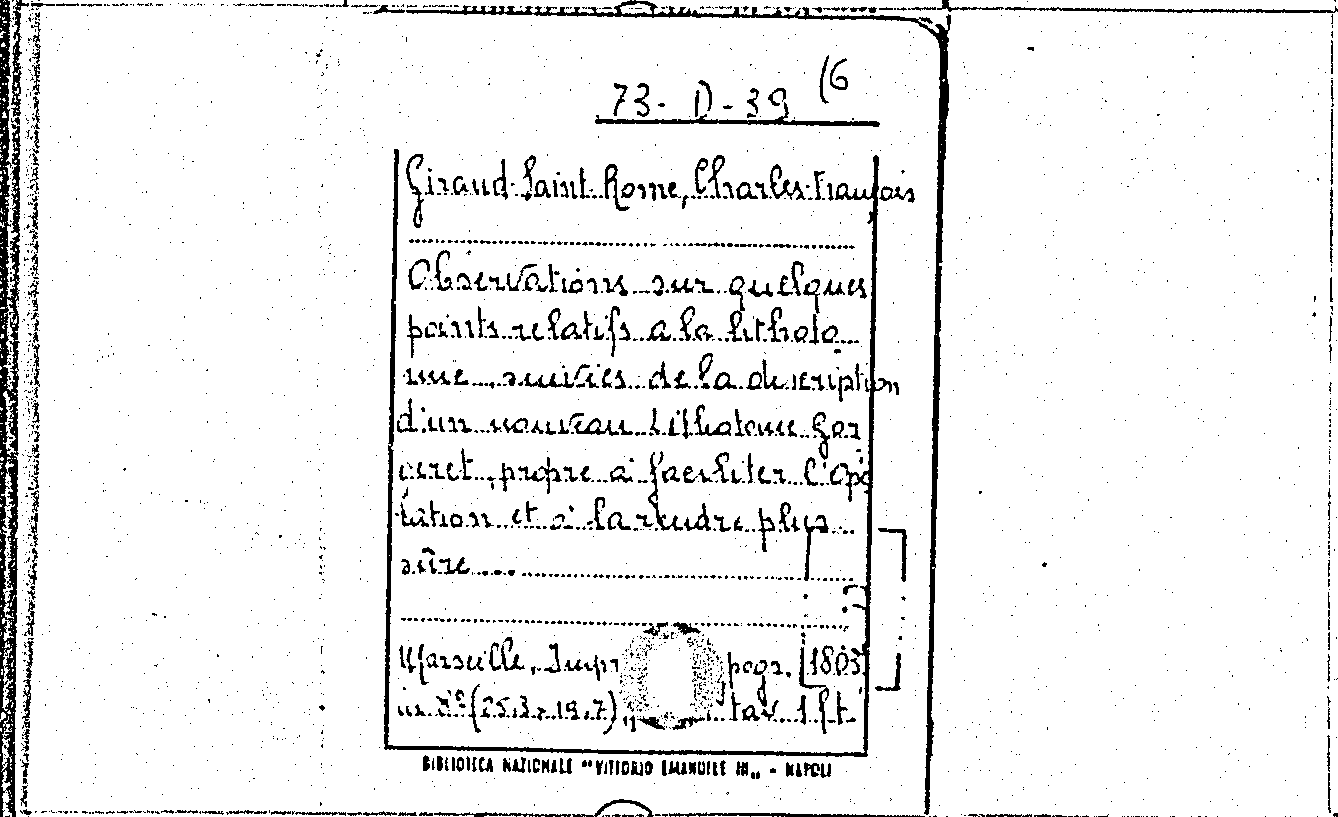 73-D-39 (6
Giraud-Saint-Rome, Charles-François
Observations sur quelques
points relatifs a la litholo
mie, suivies de la description
d'un nouveau Lithotome Gor
ceret, propre à faciliter l'opé
ration et à la rendre plus
sûre...
Marseille, Impr pogr. [1803]
in 8° (25.3 x 19.7), tav. 1 f.t.
BIBLIOTECA NAZIONALE "VITTORIO EMANUELE III" - NAPOLI